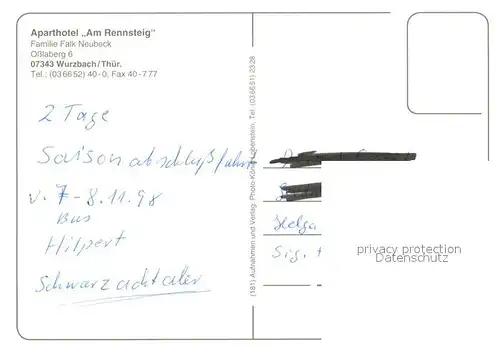 Aparthotel „Am Rennsteig“
Familie Falk Neubeck
Oßlaberg 6
07343 Wurzbach/Thür.
Tel.: (03 66 52) 40-0, Fax 40-7 77
2 Tage
Saisonabschlußfahrt
v. 7-8.11.98
Bus
Hilpert
Schwarzachtaler
(181) Aufnahmen und Verlag: Tel. (03 66 51) 23 28
Helga
Sig.
privacy protection
Datenschutz